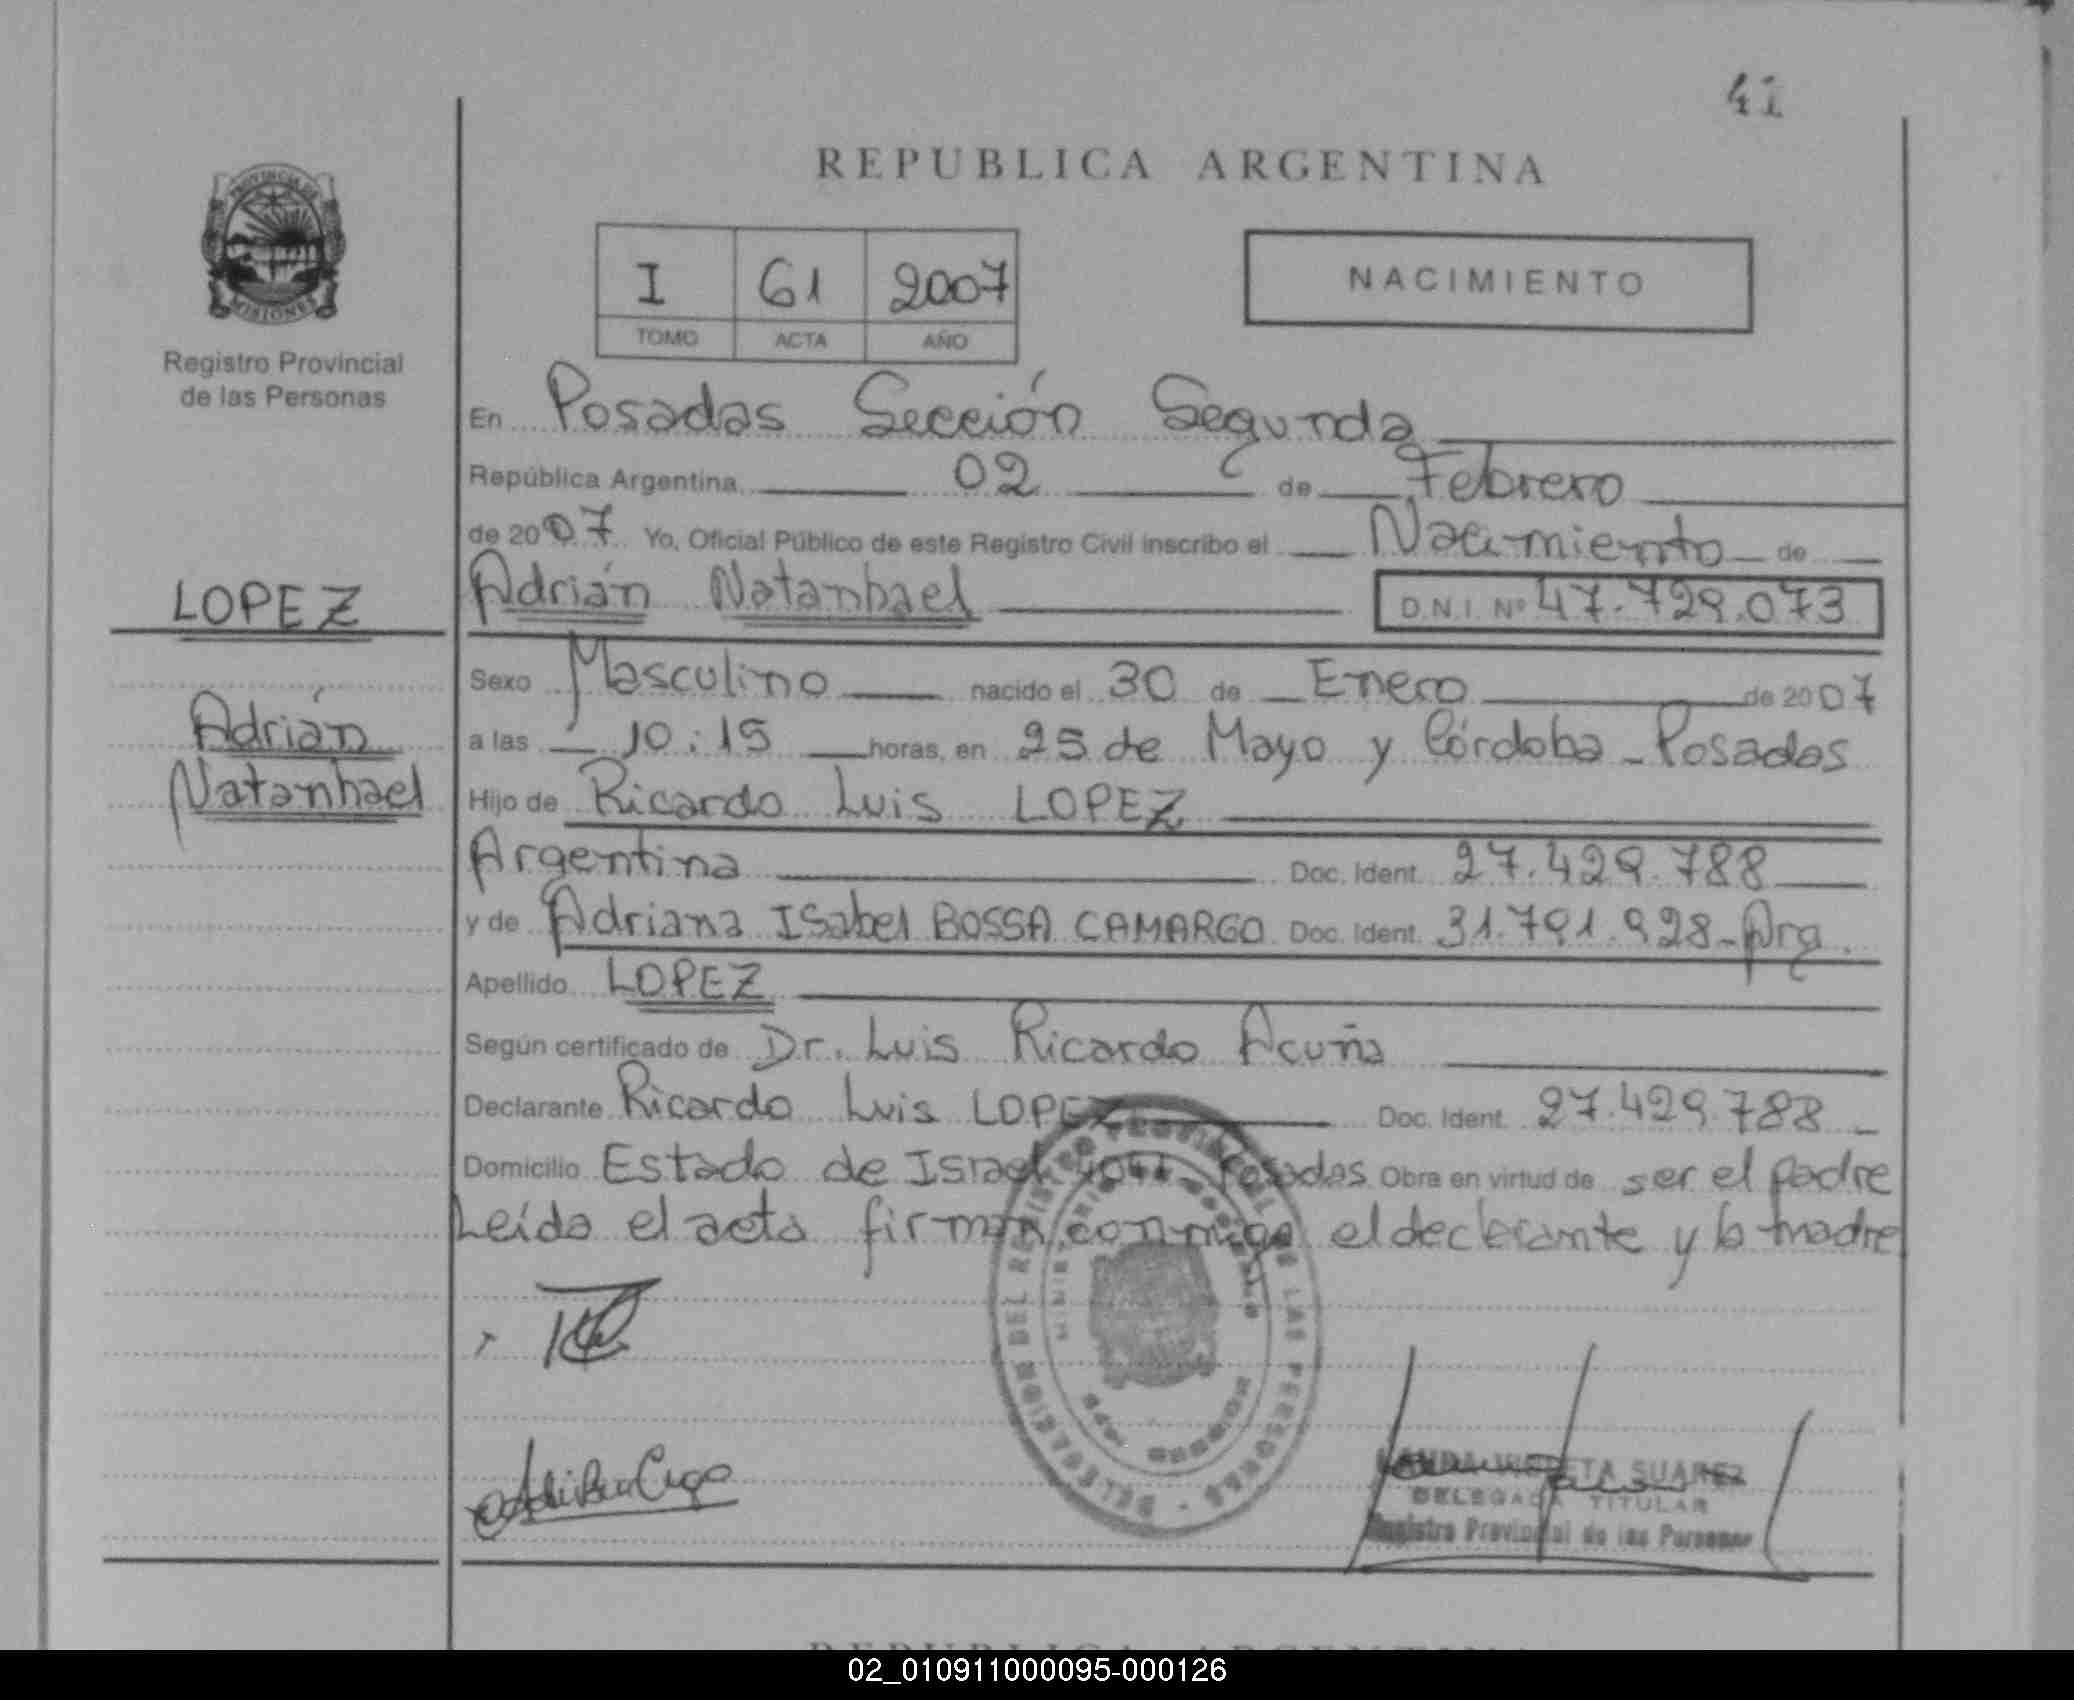 41
REPUBLICA ARGENTINA
PROVINCIA DE
MISIONES
Registro Provincial
de las Personas
I 61 2007
TOMO ACTA AÑO
NACIMIENTO
En Posadas Sección Segunda
República Argentina 02 de Febrero
de 2007 Yo, Oficial Público de este Registro Civil inscribo el Nacimiento de
LOPEZ
Adrián Natanhael D.N.I. Nº 47.729.073
Sexo Masculino nacido el 30 de Enero de 2007
Adrián
a las 10:15 horas, en 25 de Mayo y Córdoba - Posadas
Natanhael
Hijo de Ricardo Luis LOPEZ
Argentina Doc. Ident. 27.429.788
y de Adriana ISabel BOSSA CAMARGO Doc. Ident. 31.791.928 - Arg.
Apellido LOPEZ
Según certificado de Dr. Luis Ricardo Acuña
Declarante Ricardo Luis LOPEZ Doc. Ident. 27.429.788 -
Domicilio Estado de Israel Posadas Obra en virtud de ser el padre
Leída el acta firman conmigo el declarante y la madre
DELEGACION DEL REGISTRO PROVINCIAL DE LAS PERSONAS
SUAREZ
DELEGADA TITULAR
Registro Provincial de las Personas
REPUBLICA ARGENTINA
02_010911000095-000126